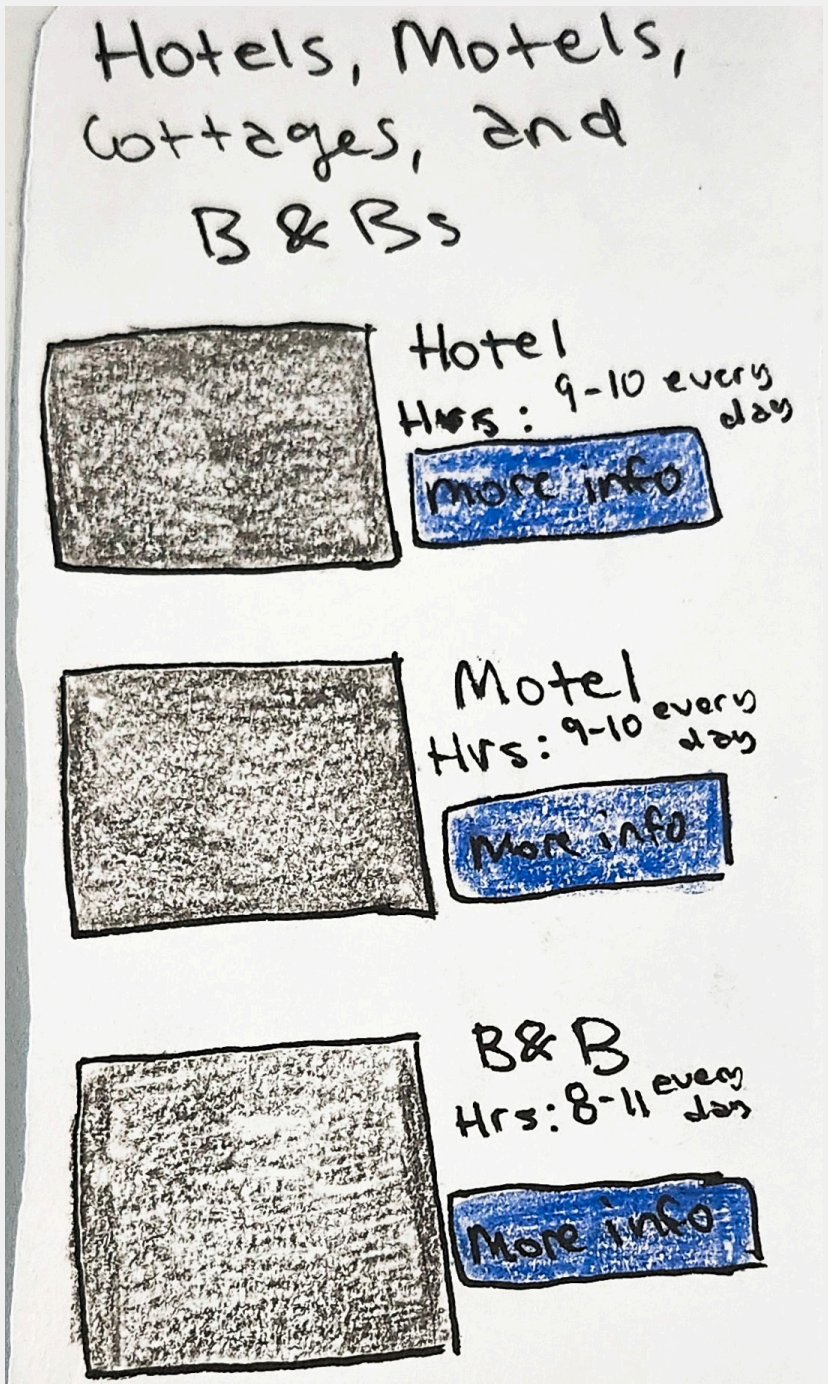 Hotels, Motels,
Cottages, and
B & Bs
Hotel
Hrs: 9-10 every
day
more info
Motel
Hrs: 9-10 every
day
More info
B & B
Hrs: 8-11 every
day
More info